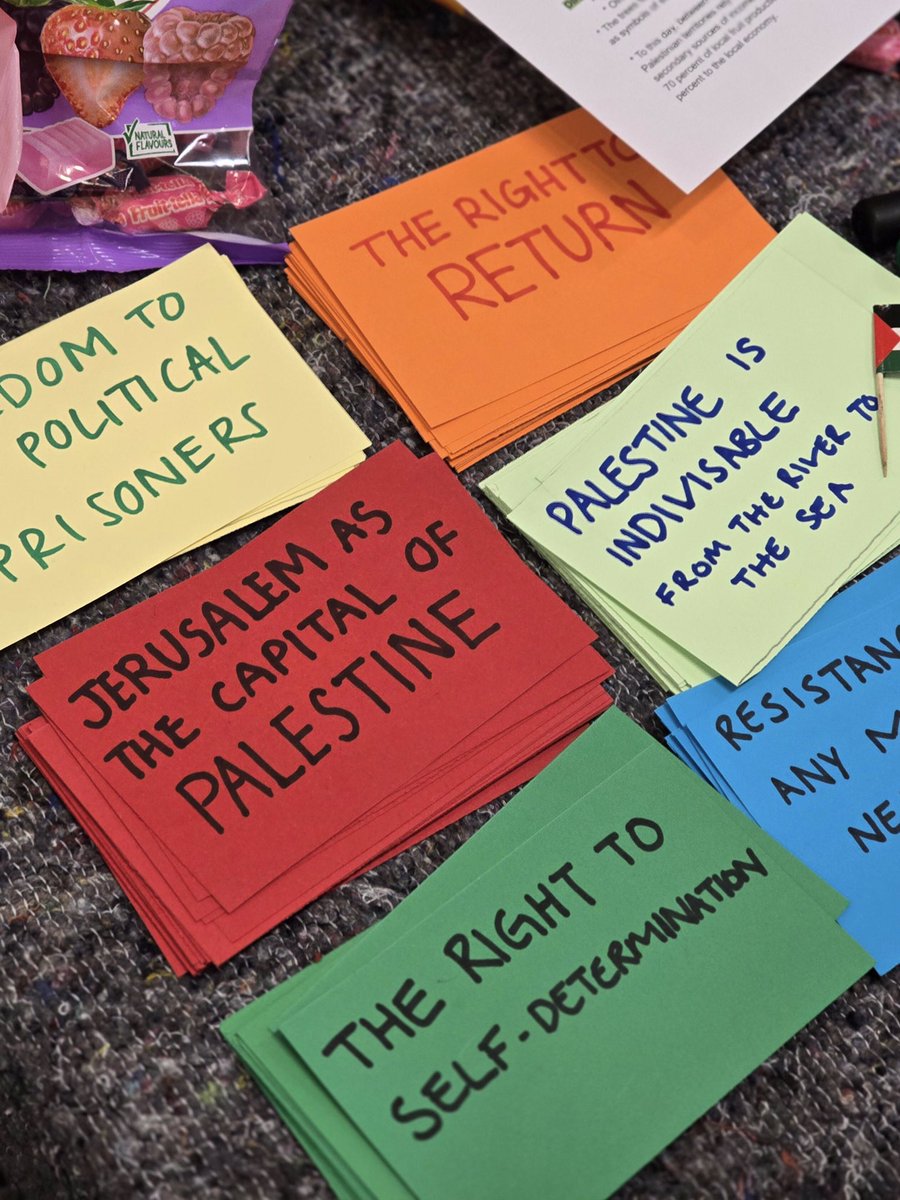 NATURAL
FLAVOURS
Fruittella
as symbols of
To this day, between
Palestinian territories rely
secondary sources of income
70 percent of local fruit
percent to the local economy.
THE RIGHT TO
RETURN
TO
POLITICAL
PRISONERS
PALESTINE IS
INDIVISABLE
FROM THE RIVER TO
THE SEA
JERUSALEM AS
THE CAPITAL OF
PALESTINE
ANY
THE RIGHT TO
SELF-DETERMINATION